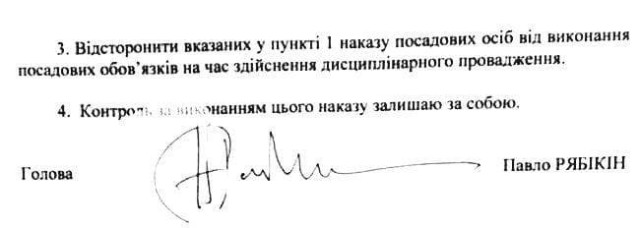 3. Відсторонити вказаних у пункті 1 наказу посадових осіб від виконання
посадових обов’язків на час здійснення дисциплінарного провадження.
4. Контроль за виконанням цього наказу залишаю за собою.
Голова Павло РЯБІКІН